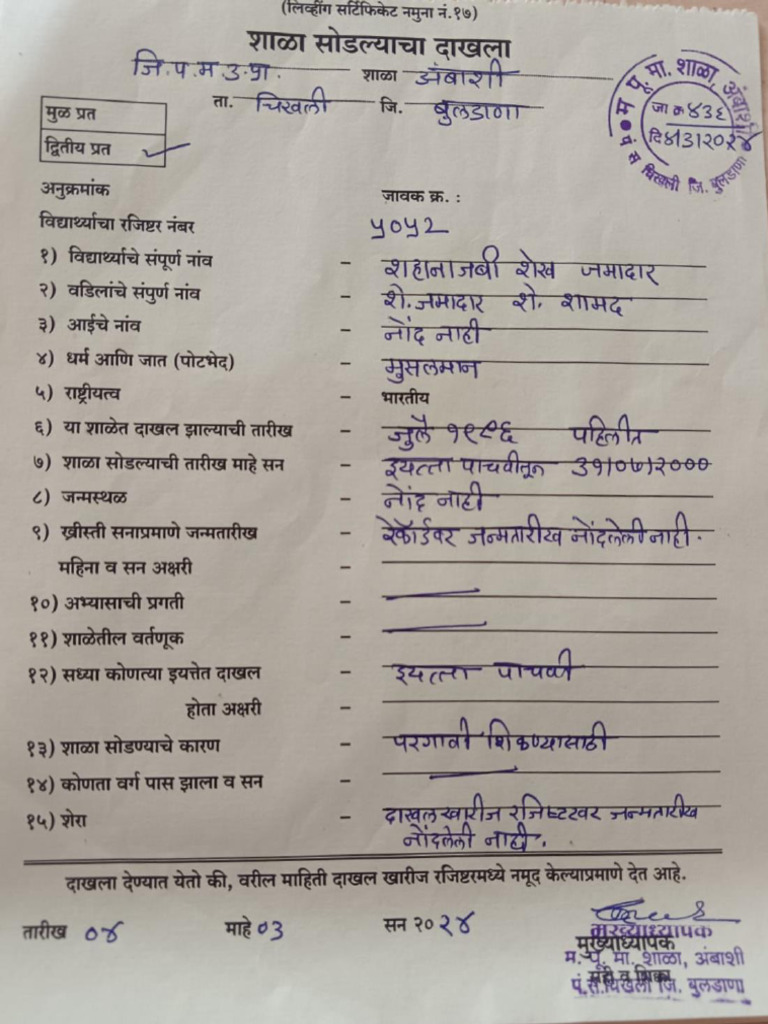 (लिव्हींग सर्टिफिकेट नमुना नं.१७)
शाळा सोडल्याचा दाखला
जि.प.म.उ.प्रा. शाळा अंबाशी
ता. चिखली जि. बुलडाणा
म. पू. मा. शाळा, अंबाशी
जा क्र ४३६
दि ४।३।२०२४
पं स चिखली जि. बुलडाणा
मुळ प्रत
द्वितीय प्रत ✓
अनुक्रमांक जावक क्र. :
विद्यार्थ्याचा रजिष्टर नंबर ५०५२
१) विद्यार्थ्याचे संपूर्ण नांव – शहानाजबी शेख जमादार
२) वडिलांचे संपुर्ण नांव – शे. जमादार शे. शामद
३) आईचे नांव – नोंद नाही
४) धर्म आणि जात (पोटभेद) – मुसलमान
५) राष्ट्रीयत्व – भारतीय
६) या शाळेत दाखल झाल्याची तारीख – जुलै १९९६ पहिलीत
७) शाळा सोडल्याची तारीख माहे सन – इयत्ता पाचवीतून ३१।०७।२०००
८) जन्मस्थळ – नोंद नाही
९) ख्रीस्ती सनाप्रमाणे जन्मतारीख – रेकॉर्डवर जन्मतारीख नोंदलेली नाही.
महिना व सन अक्षरी –
१०) अभ्यासाची प्रगती –
११) शाळेतील वर्तणूक –
१२) सध्या कोणत्या इयत्तेत दाखल – इयत्ता पाचवी
होता अक्षरी –
१३) शाळा सोडण्याचे कारण – परगावी शिकण्यासाठी
१४) कोणता वर्ग पास झाला व सन –
१५) शेरा – दाखलखारीज रजिष्टरवर जन्मतारीख
नोंदलेली नाही.
दाखला देण्यात येतो की, वरील माहिती दाखल खारीज रजिष्टरमध्ये नमूद केल्याप्रमाणे देत आहे.
तारीख ०४ माहे ०३ सन २०२४
मुख्याध्यापक
मुख्याध्यापक
म. पू. मा. शाळा, अंबाशी
सही व शिक्का
पं.स.चिखली जि. बुलडाणा